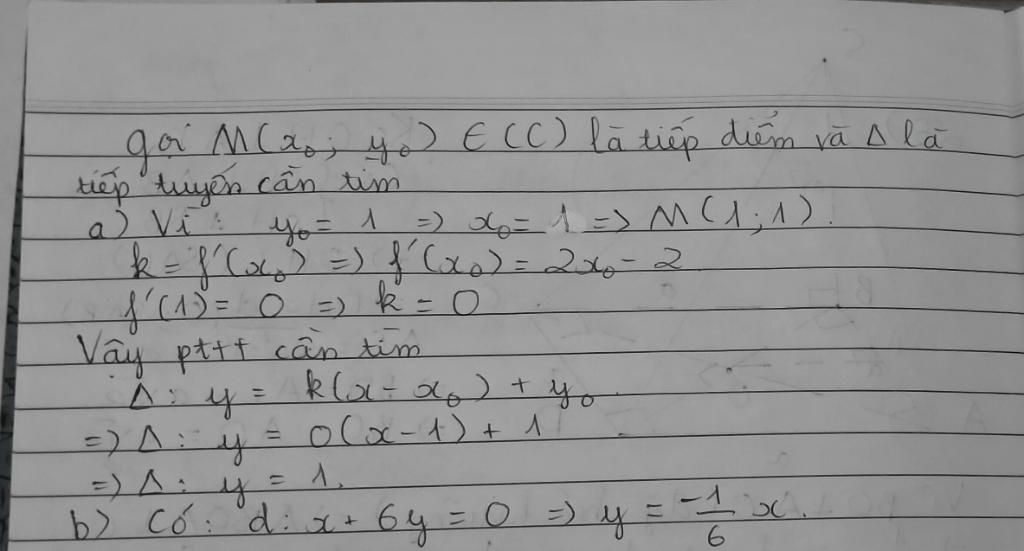 gọi M(x₀; y₀) ∈ (C) là tiếp điểm và Δ là
tiếp tuyến cần tìm
a) Vì: y₀ = 1 => x₀ = 1 => M(1;1).
k = f'(x₀) => f'(x₀) = 2x₀ - 2
f'(1) = 0 => k = 0
Vậy pttt cần tìm
Δ: y = k(x - x₀) + y₀
=> Δ: y = 0(x-1) + 1
=> Δ: y = 1.
b) Có: d: x + 6y = 0 => y = -1/6 x.